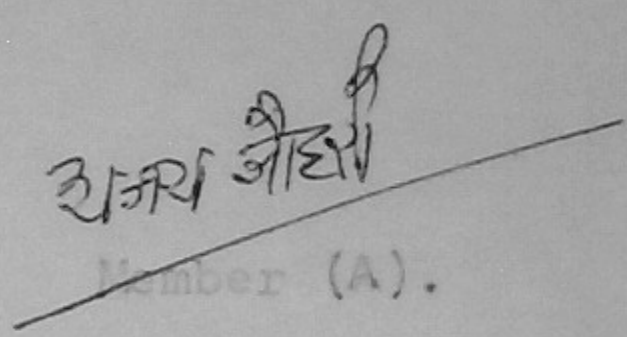 अजय जौहरी
Member (A).